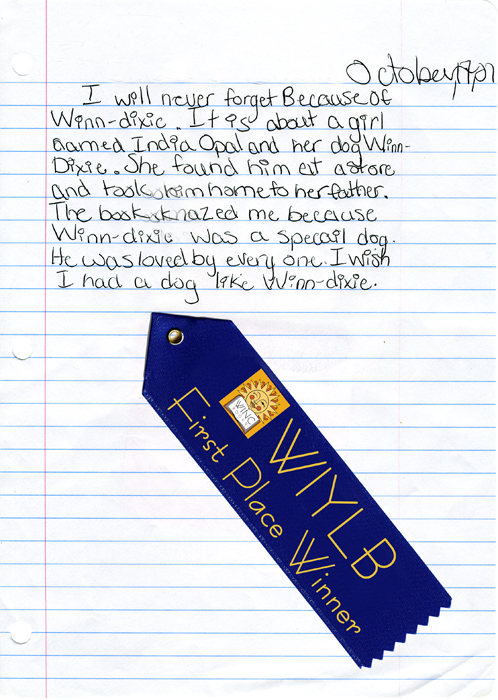 October,17,07
I will never forget Because of
Winn-dixie. It is about a girl
named India Opal and her dog Winn-
Dixie. She found him at a store
and took him home to her father.
The book me because
Winn-dixie was a specail dog.
He was loved by every one. I wish
I had a dog like Winn-dixie.
WING
WIYLB
First Place Winner